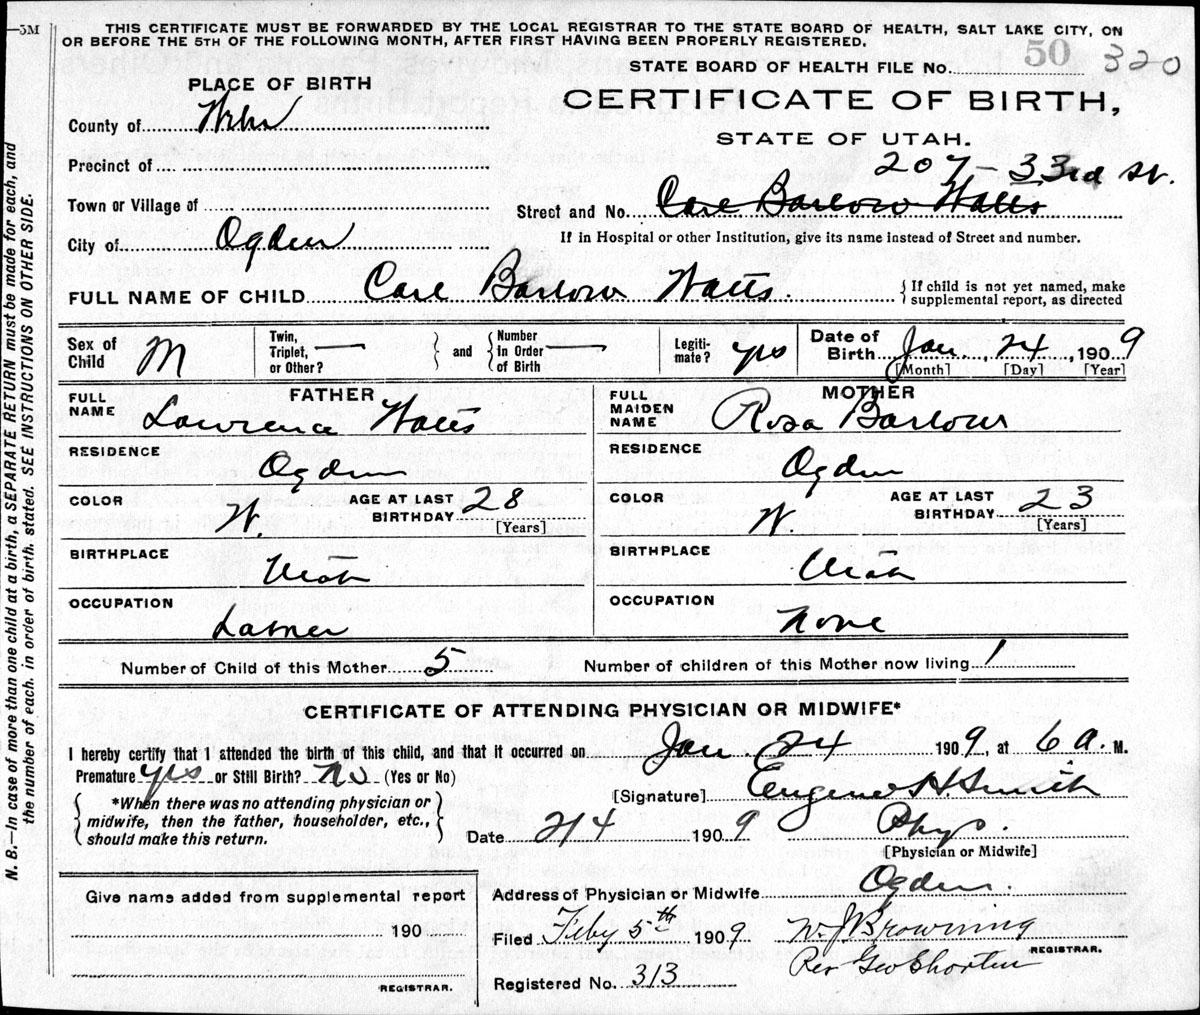 —5M
THIS CERTIFICATE MUST BE FORWARDED BY THE LOCAL REGISTRAR TO THE STATE BOARD OF HEALTH, SALT LAKE CITY, ON
OR BEFORE THE 5TH OF THE FOLLOWING MONTH, AFTER FIRST HAVING BEEN PROPERLY REGISTERED.
STATE BOARD OF HEALTH FILE No. 50 320
PLACE OF BIRTH
CERTIFICATE OF BIRTH,
STATE OF UTAH.
County of Weber
Precinct of
Town or Village of
City of Ogden
207 - 33rd St.
Street and No. Carl Barlow Watts
If in Hospital or other Institution, give its name instead of Street and number.
FULL NAME OF CHILD Carl Barlow Watts. { If child is not yet named, make
supplemental report, as directed
Sex of Child M
Twin, Triplet, or Other? — } and { Number In Order of Birth —
Legiti-mate? yes
Date of Birth Jan., 24, 1909
[Month] [Day] [Year]
FATHER
FULL NAME Lawrence Watts
RESIDENCE Ogden
COLOR W. AGE AT LAST BIRTHDAY 28 [Years]
BIRTHPLACE Utah
OCCUPATION Laborer
MOTHER
FULL MAIDEN NAME Rosa Barlow
RESIDENCE Ogden
COLOR W AGE AT LAST BIRTHDAY 23 [Years]
BIRTHPLACE Utah
OCCUPATION None
Number of Child of this Mother 5 Number of children of this Mother now living 1
CERTIFICATE OF ATTENDING PHYSICIAN OR MIDWIFE*
I hereby certify that I attended the birth of this child, and that it occurred on Jan 24 1909, at 6 A. M.
Premature yes or Still Birth? no (Yes or No)
{ *When there was no attending physician or
midwife, then the father, householder, etc.,
should make this return. }
[Signature] Eugene H. Smith
Date 2/4 1909 Phys.
[Physician or Midwife]
Address of Physician or Midwife Ogden.
Give name added from supplemental report
190
REGISTRAR.
Filed Feby 5th 1909 W. J. Browning
REGISTRAR.
Per Geo Shorten
Registered No. 313
N. B.—In case of more than one child at a birth, a SEPARATE RETURN must be made for each, and
the number of each, in order of birth, stated. SEE INSTRUCTIONS ON OTHER SIDE.